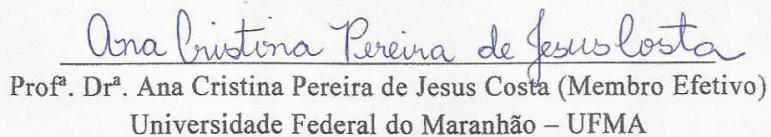 Ana Cristina Pereira de Jesus Costa
Profª. Drª. Ana Cristina Pereira de Jesus Costa (Membro Efetivo)
Universidade Federal do Maranhão – UFMA